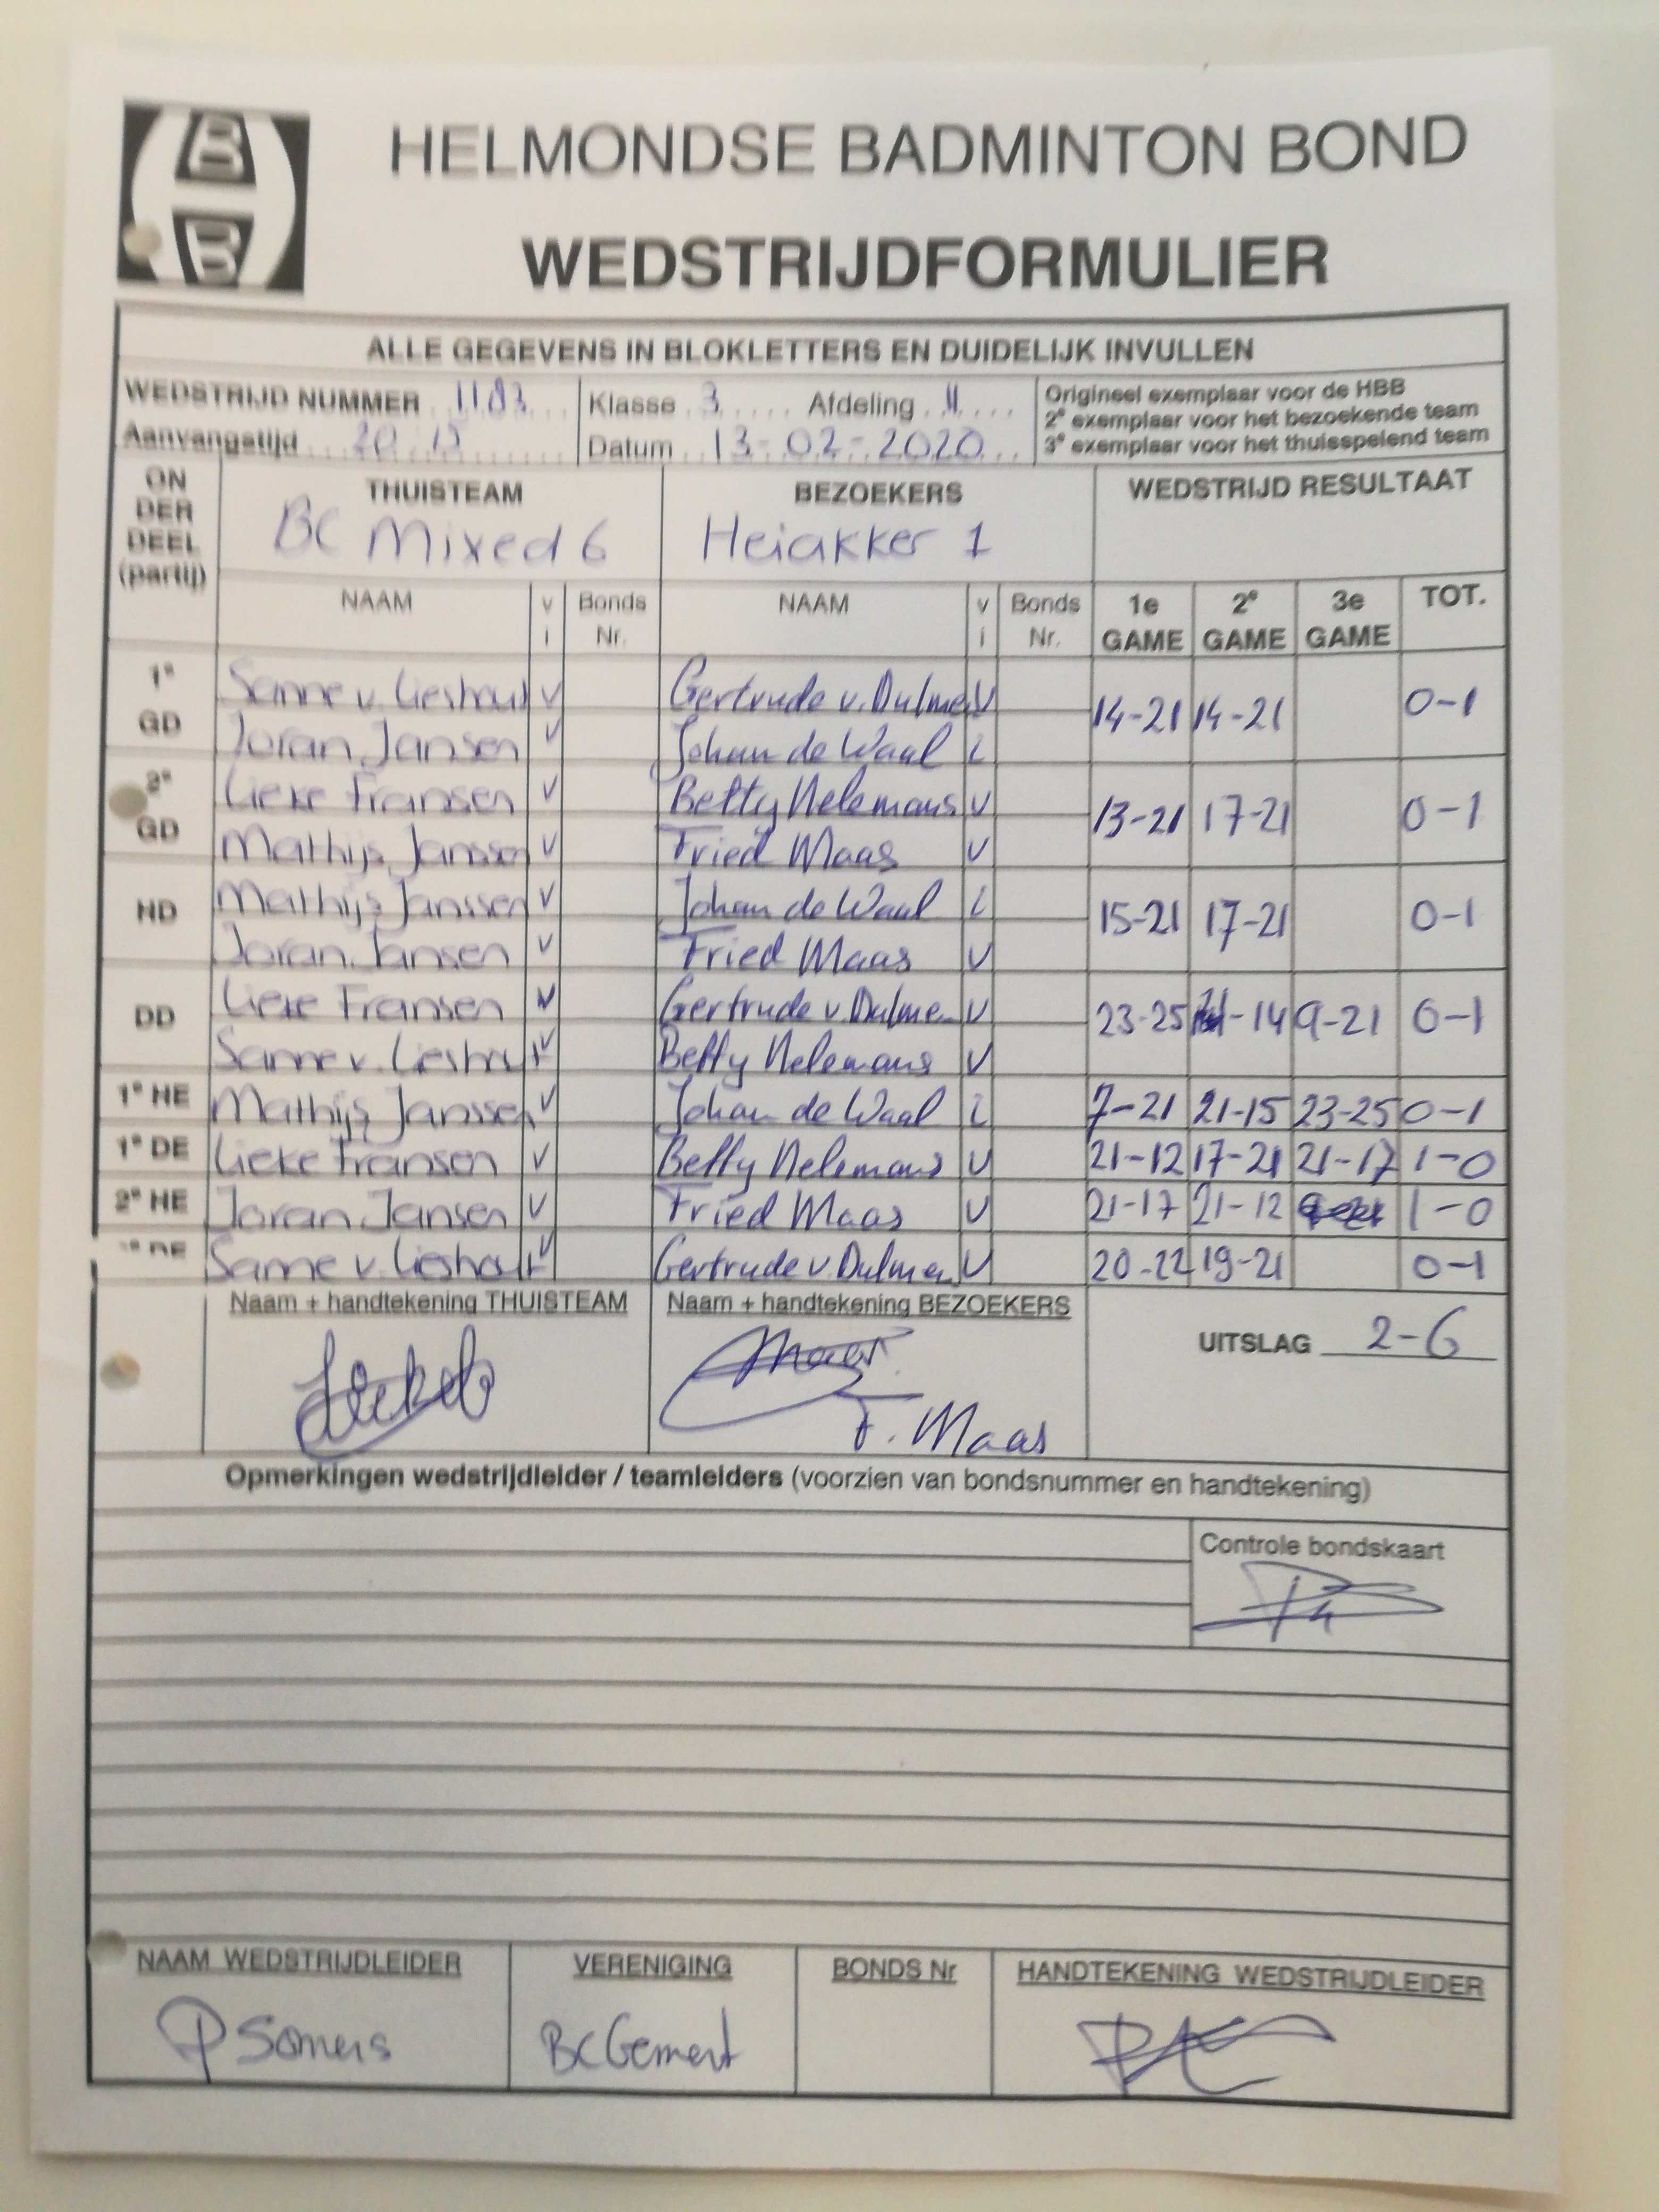 HELMONDSE BADMINTON BOND
WEDSTRIJDFORMULIER
ALLE GEGEVENS IN BLOKLETTERS EN DUIDELIJK INVULLEN
WEDSTRIJD NUMMER 1183 Klasse 3 Afdeling 11 Origineel exemplaar voor de HBB
2e exemplaar voor het bezoekende team
Aanvangstijd 20.15 Datum 13-02-2020 3e exemplaar voor het thuisspelend team
ON DER DEEL (partij) THUISTEAM BEZOEKERS WEDSTRIJD RESULTAAT
BC Mixed 6 Heiakker 1
NAAM v i Bonds Nr. NAAM v i Bonds Nr. 1e GAME 2e GAME 3e GAME TOT.
1e GD Sanne v. Lieshout v Gertrude v. Dulmen v 14-21 14-21 0-1
Joran Jansen v Johan de Waal i
2e GD Lieke Fransen v Betty Nelemans v 13-21 17-21 0-1
Mathijs Janssen v Fried Maas v
HD Mathijs Janssen v Johan de Waal i 15-21 17-21 0-1
Joran Jansen v Fried Maas v
DD Lieke Fransen v Gertrude v. Dulmen v 23-25 -14 9-21 0-1
Sanne v. Lieshout v Betty Nelemans v
1e HE Mathijs Janssen v Johan de Waal i 7-21 21-15 23-25 0-1
1e DE Lieke Fransen v Betty Nelemans v 21-12 17-21 21-17 1-0
2e HE Joran Jansen v Fried Maas v 21-17 21-12 1-0
DE Sanne v. Lieshout v Gertrude v. Dulmen v 20-22 19-21 0-1
Naam + handtekening THUISTEAM Naam + handtekening BEZOEKERS
UITSLAG 2-6
F. Maas
Opmerkingen wedstrijdleider / teamleiders (voorzien van bondsnummer en handtekening)
Controle bondskaart
NAAM WEDSTRIJDLEIDER VERENIGING BONDS Nr HANDTEKENING WEDSTRIJDLEIDER
P Somers BC Gemert